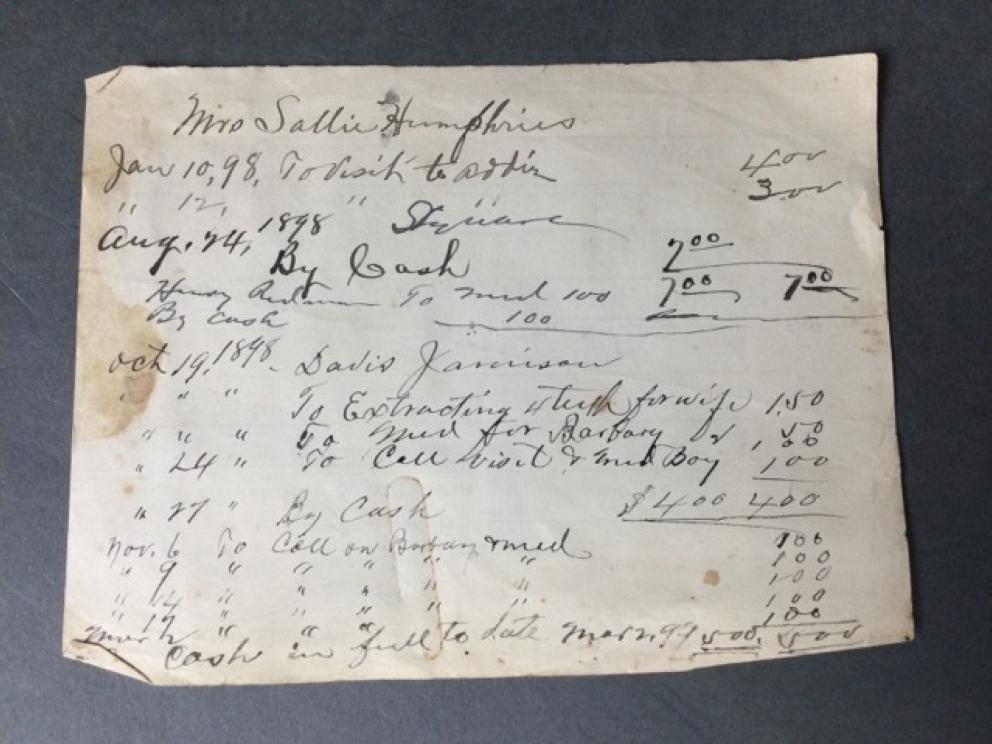 Mrs Sallie Humphries
Jan 10, 98, To visit to 4 00
" 12, " " Square 3 00
Aug. 24, 1898
By Cash 7 00
Henry To med 100 7 00 7 00
By cash 100
Oct 19, 1898 - Davis Jamison
" " " To Extracting 4 teeth for wife 1.50
" " " To Med for Barbary 50
" 24 " To Call visit & med Boy 1 00
1 00
" 27 " By Cash $4 00 4 00
Nov. 6 To Call on Barbary & med 1 00
" 9 " " " " " 1 00
" 14 " " " " " 1 00
" 17 " " " " 1 00
1 00
Mar 2 Cash in full to date Mar 2, 99 5 00. 5 00